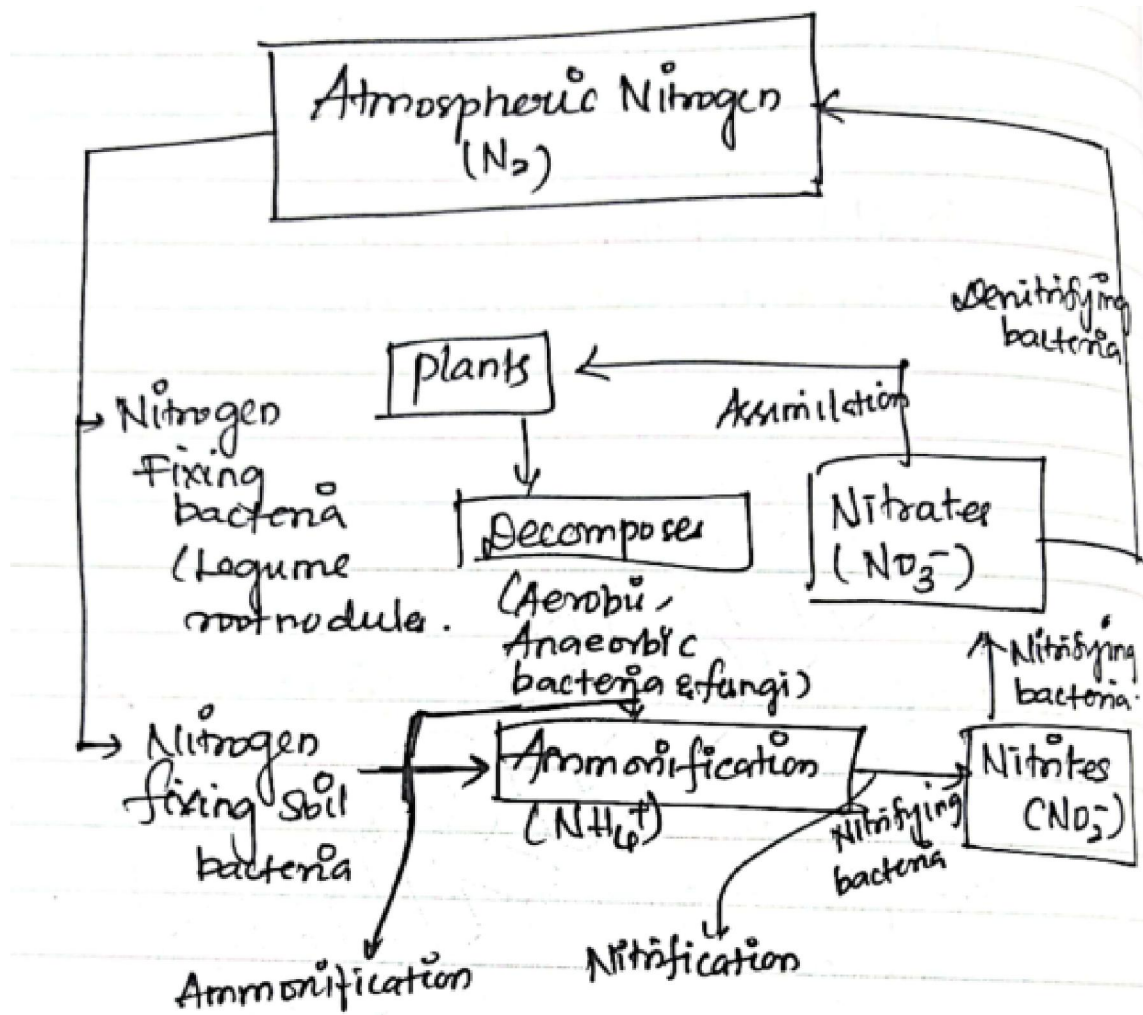 Atmospheric Nitrogen
(N₂)
Denitrifying
bacteria
plants
Assimilation
Nitrogen
Fixing
bacteria
(Legume
root nodule.
Decomposer
(Aerobic,
Anaeorbic
bacteria & fungi)
Nitrates
(NO₃⁻)
Nitrifying
bacteria.
Nitrogen
fixing soil
bacteria
Ammonification
(NH₄⁺)
Nitrifying
bacteria
Nitrites
(NO₂⁻)
Ammonification
Nitrification